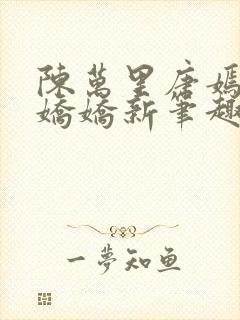 陳萬里唐嫣
嬌嬌新筆趣
一夢知鱼